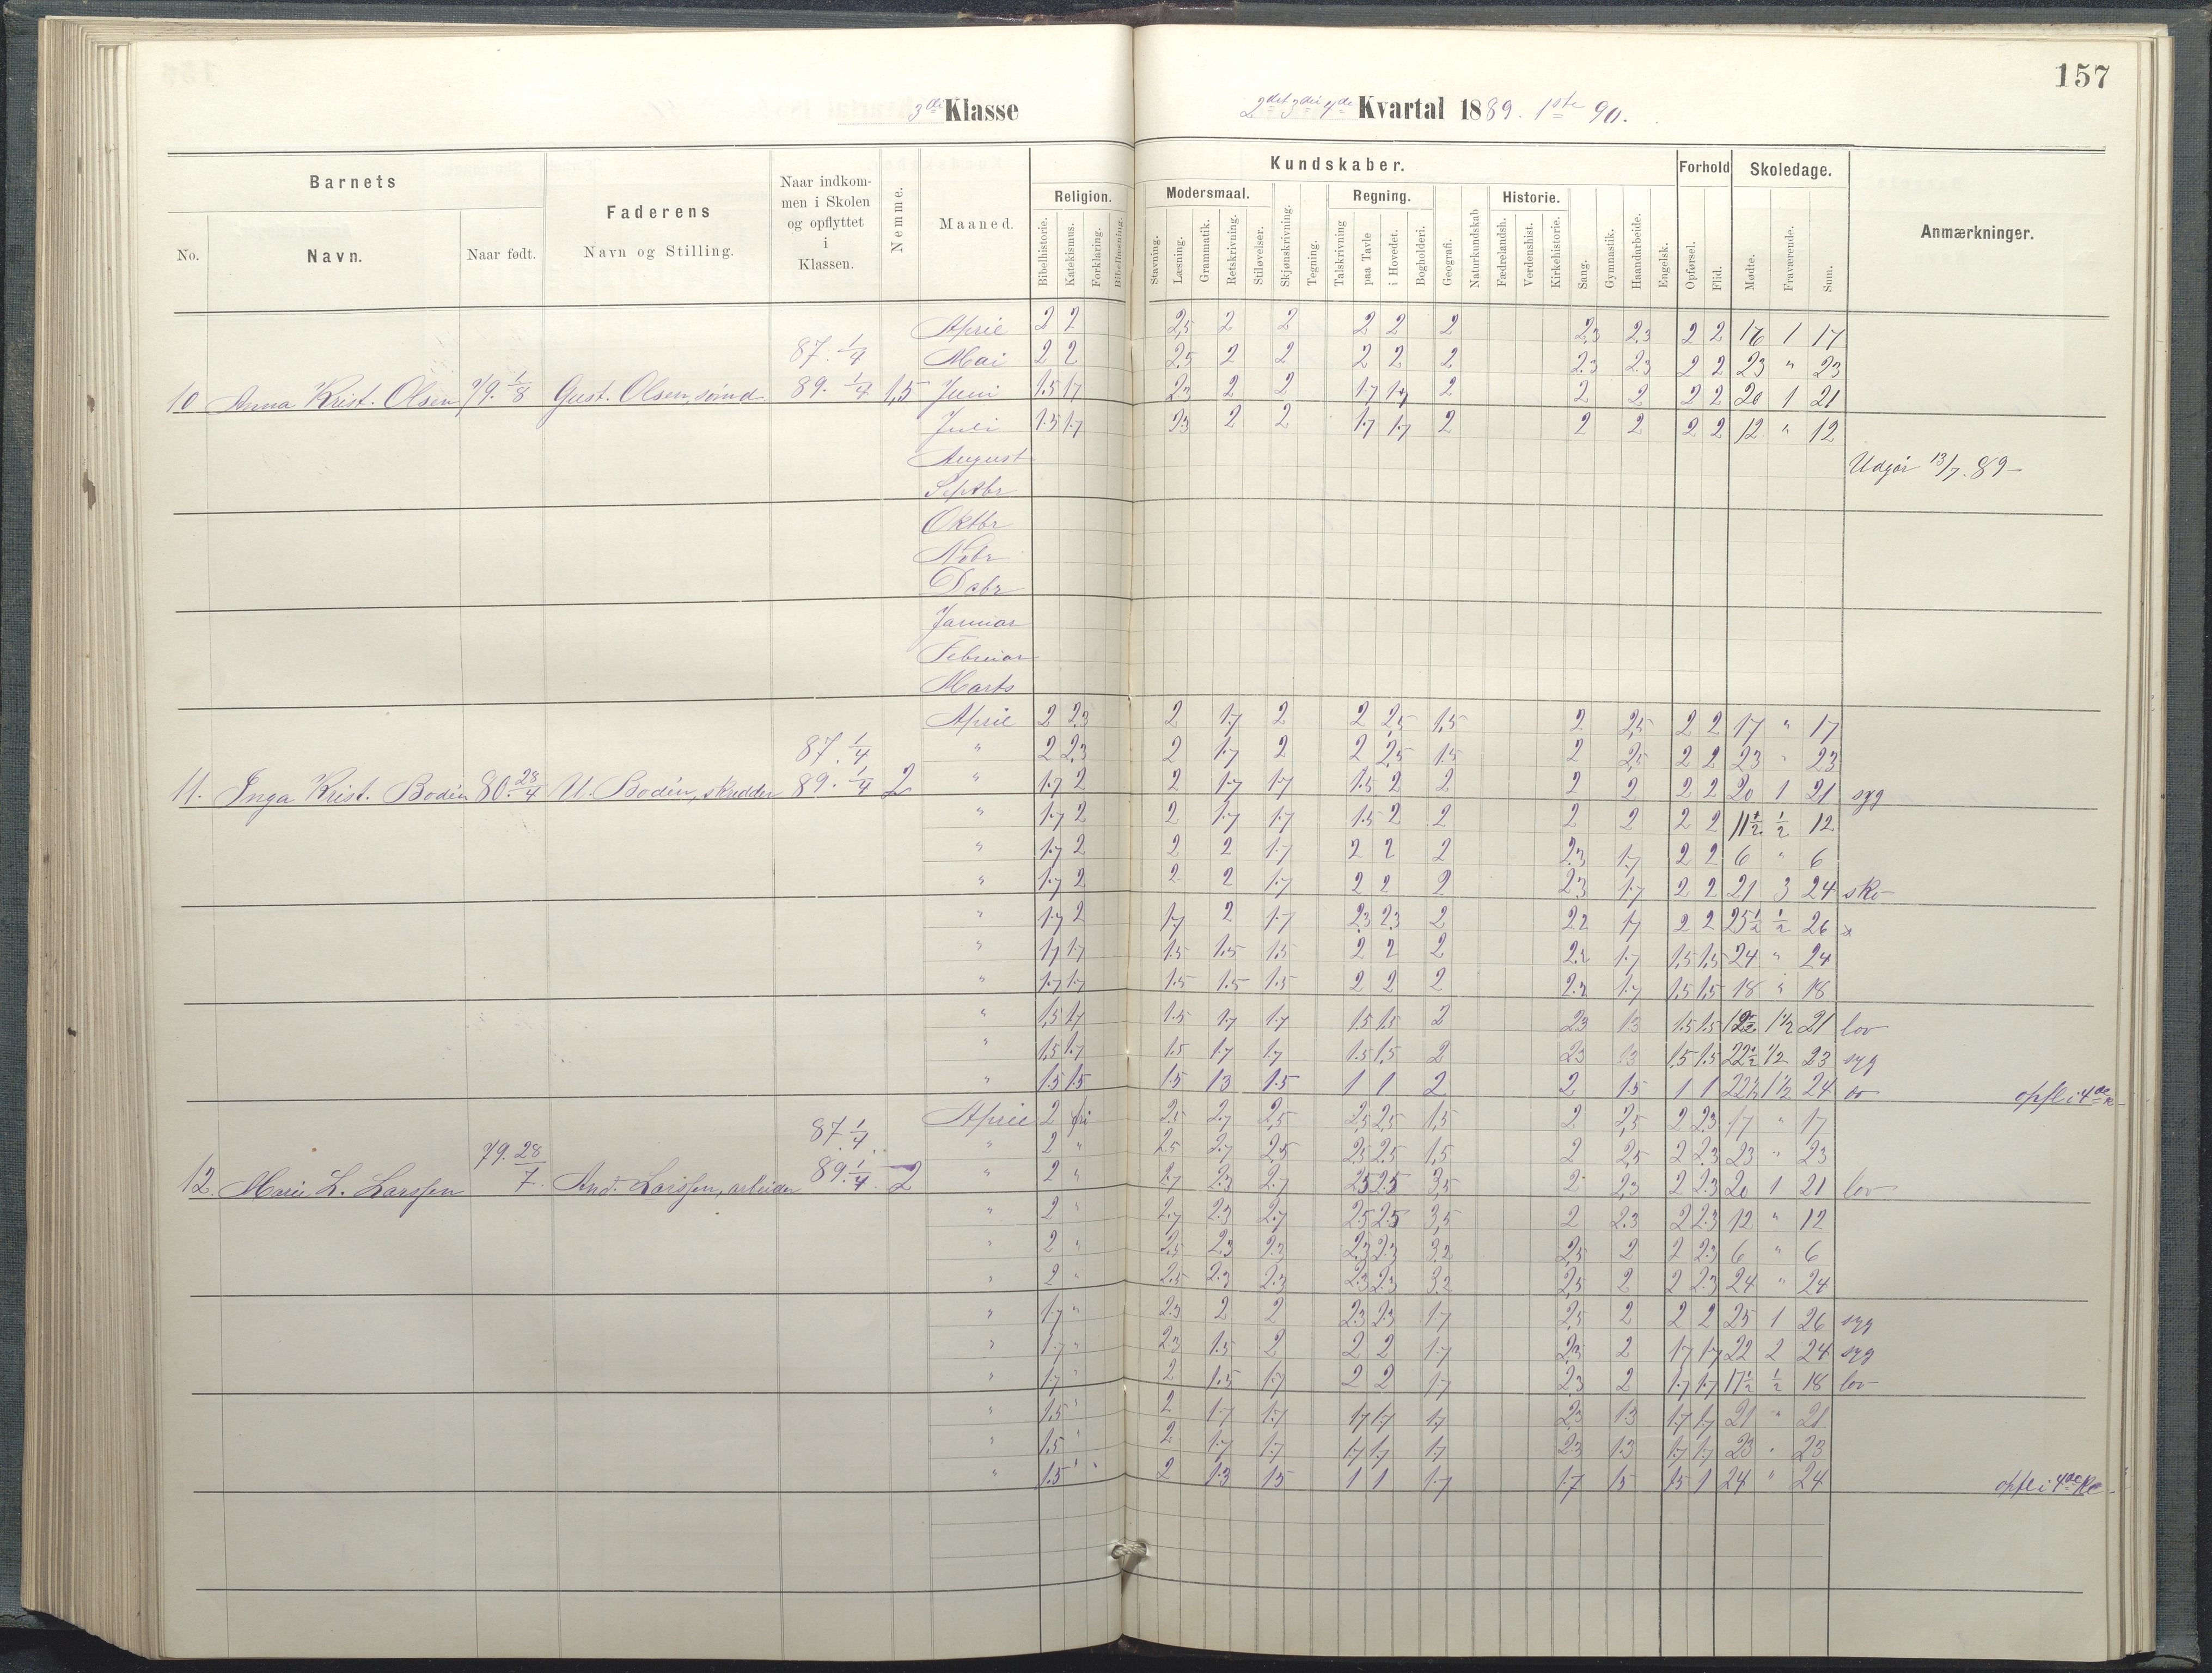 157
3die Klasse 2det 3die 4de Kvartal 1889. 1ste 90.
Barnets Faderens Naar indkommen i Skolen og opflyttet i Klassen. Nemme. Maaned. Kundskaber. Forhold Skoledage. Anmærkninger.
Religion. Modersmaal. Regning. Historie.
No. Navn. Naar født. Navn og Stilling. Bibelhistorie. Katekismus. Forklaring. Bibellæsning. Stavning. Læsning. Grammatik. Retskrivning. Stiløvelser. Skjønskrivning. Tegning. Talskrivning paa Tavle i Hovedet. Bogholderi. Geografi. Naturkundskab Fædrelandsh. Verdenshist. Kirkehistorie. Sang. Gymnastik. Haandarbeide. Engelsk. Opførsel. Flid. Mødte. Fraværende. Sum.
April 2 2 2,5 2 2 2 2 2 2.3 2.3 2 2 16 1 17
87. 1/4 Mai 2 2 2.5 2 2 2 2 2 2.3 2.3 2 2 23 " 23
10 Anna Krist. Olsen 79. 1/8 Gust. Olsen, sømd 89. 1/4 1,5 Juni 1.5 1.7 2.3 2 2 1.7 1.7 2 2 2 2 2 20 1 21
Juli 1.5 1.7 2.3 2 2 1.7 1.7 2 2 2 2 2 12 " 12
August Udgår 13/7. 89
Septbr
Oktbr
Nobr
Dsbr
Januar
Februar
Marts
April 2 2.3 2 1.7 2 2 2,5 1,5 2 2,5 2 2 17 " 17
87. 1/4 " 2 2.3 2 1.7 2 2 2,5 1.5 2 2,5 2 2 23 " 23
11. Inga Krist. Bodin 80. 28/4 U. Bodin, skrædder 89. 1/4 2 " 1.7 2 2 1.7 1.7 1.5 2 2 2 2 2 2 20 1 21 syg
" 1.7 2 2 1.7 1.7 1.5 2 2 2 2 2 2 11 1/2 1/2 12
" 1.7 2 2 2 1.7 2 2 2 2.3 1.7 2 2 6 " 6
" 1.7 2 2 2 1.7 2 2 2 2.3 1.7 2 2 21 3 24 sko
" 1.7 2 1.7 2 1.7 2.3 2.3 2 2.2 1.7 2 2 25 1/2 1/2 26
" 1.7 1.7 1.5 1.5 1.5 2 2 2 2.2 1.7 1,5 1,5 24 " 24
" 1.7 1.7 1.5 1.5 1.5 2 2 2 2.2 1.7 1.5 1.5 18 " 18
" 1,5 1.7 1.5 1.7 1.7 1.5 1.5 2 2.3 1.3 1.5 1.5 1 1/2 21 lov
" 1,5 1.7 1.5 1.7 1.7 1.5 1.5 2 2.3 1.3 1.5 1.5 22 1/2 1/2 23 syg
" 1.5 1.5 1.5 1.3 1.5 1 1 2 2 1.5 1 1 22 1/2 1 1/2 24 opfl i 4de
April 2 fri 2.5 2.7 2,5 2,5 2.5 1,5 2 2,5 2 2.3 17 " 17
87. 1/4 " 2 " 2.5 2.7 2.5 2.5 2.5 1,5 2 2,5 2 2.3 23 " 23
12. Marie L. Larssen 79. 28/7. And. Larssen, arbeider 89. 1/4 2 " 2 " 2.7 2.3 2.7 2.5 2.5 3,5 2 2,3 2 2.3 20 1 21 lov
" 2 " 2.7 2.3 2.7 2.5 2.5 3,5 2 2.3 2 2.3 12 " 12
" 2 " 2.5 2.3 2.3 2.3 2.3 3.2 2,5 2 2 2.3 6 " 6
" 2 " 2.5 2.3 2.3 2.3 2.3 3.2 2,5 2 2 2.3 24 " 24
" 1.7 " 2.3 2 2 2.3 2.3 1.7 2,5 2 2 2 25 1 26 syg
" 1.7 " 2.3 1.5 2 2 2 1.7 2.3 2 1.7 1.7 22 2 24 syg
" 1.7 " 2 1.5 1.7 2 2 1.7 2.3 2 1.7 1.7 17 1/2 1/2 18 lov
" 1.5 " 2 1.7 1.7 1.7 1.7 1.7 2.3 1.3 1.7 1.7 21 " 21
" 1.5 " 2 1.7 1.7 1.7 1.7 1.7 2.3 1.3 1.7 1.7 23 " 23
" 1.5 " 2 1.3 1.5 1 1 1.7 1.7 1.5 1.5 1 24 " 24 opfl i 4de Kl